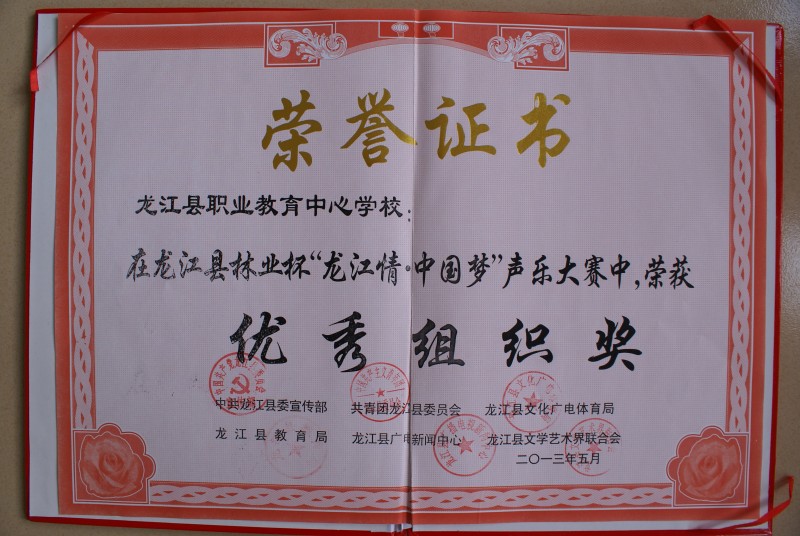 荣誉证书
龙江县职业教育中心学校：
在龙江县林业杯“龙江情·中国梦”声乐大赛中，荣获
优秀组织奖
中共龙江县委宣传部 共青团龙江县委员会 龙江县文化广电体育局
龙江县教育局 龙江县广电新闻中心 龙江县文学艺术界联合会
二〇一三年五月